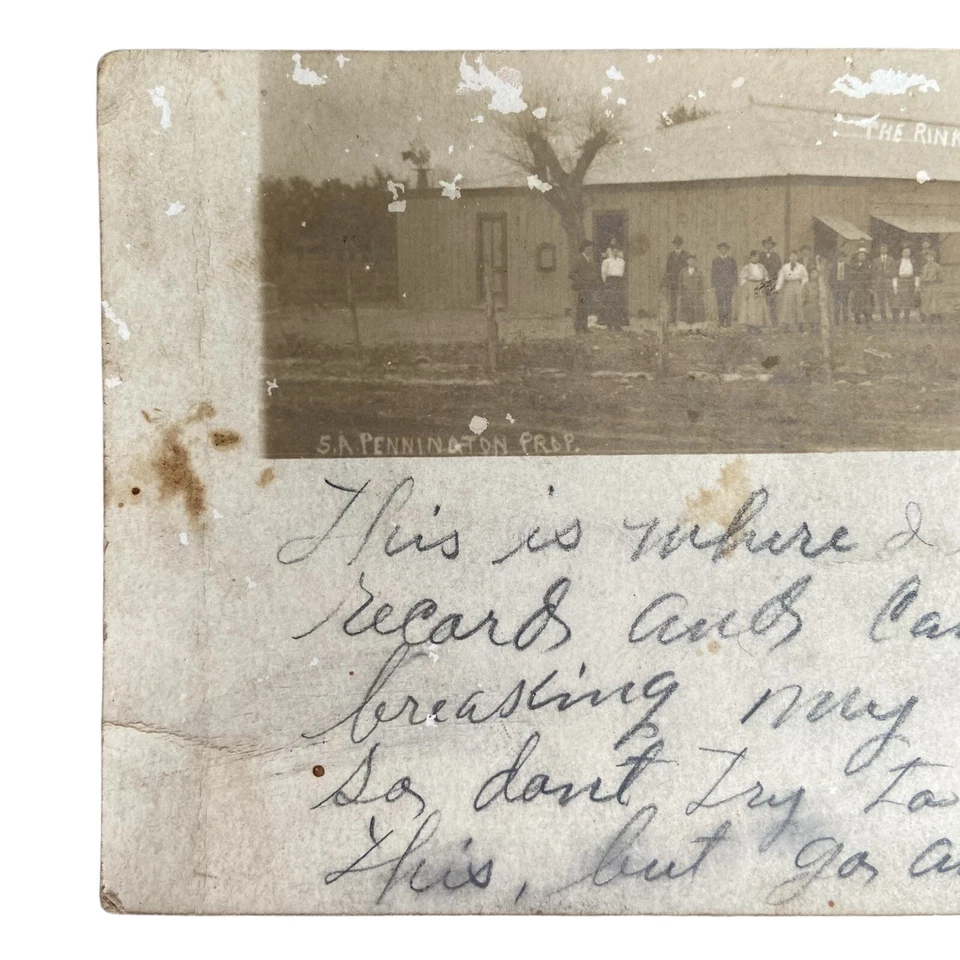 THE RINK
S.A. PENNINGTON PROP.
This is where I
record and
breaking my
So dont try to
this, but go